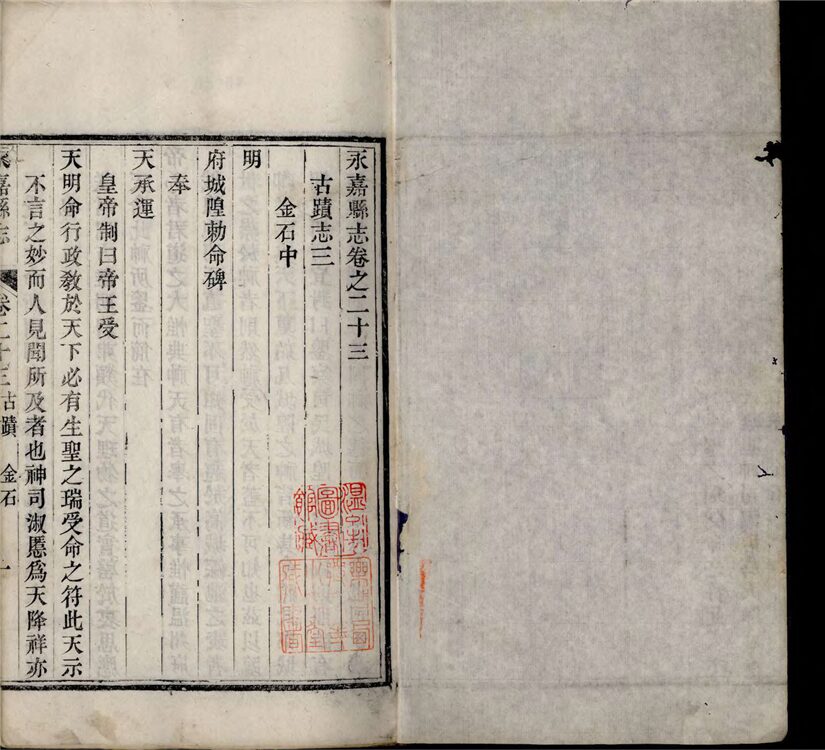 永嘉縣志卷之二十三
古蹟志三
金石中
明
府城隍勅命碑
奉
天承運
皇帝制曰帝王受
天明命行政敎於天下必有生聖之瑞受命之符此天示
不言之妙而人見聞所及者也神司淑慝爲天降祥亦
永嘉縣志 卷二十三古蹟 金石 一
溫州圖書館藏